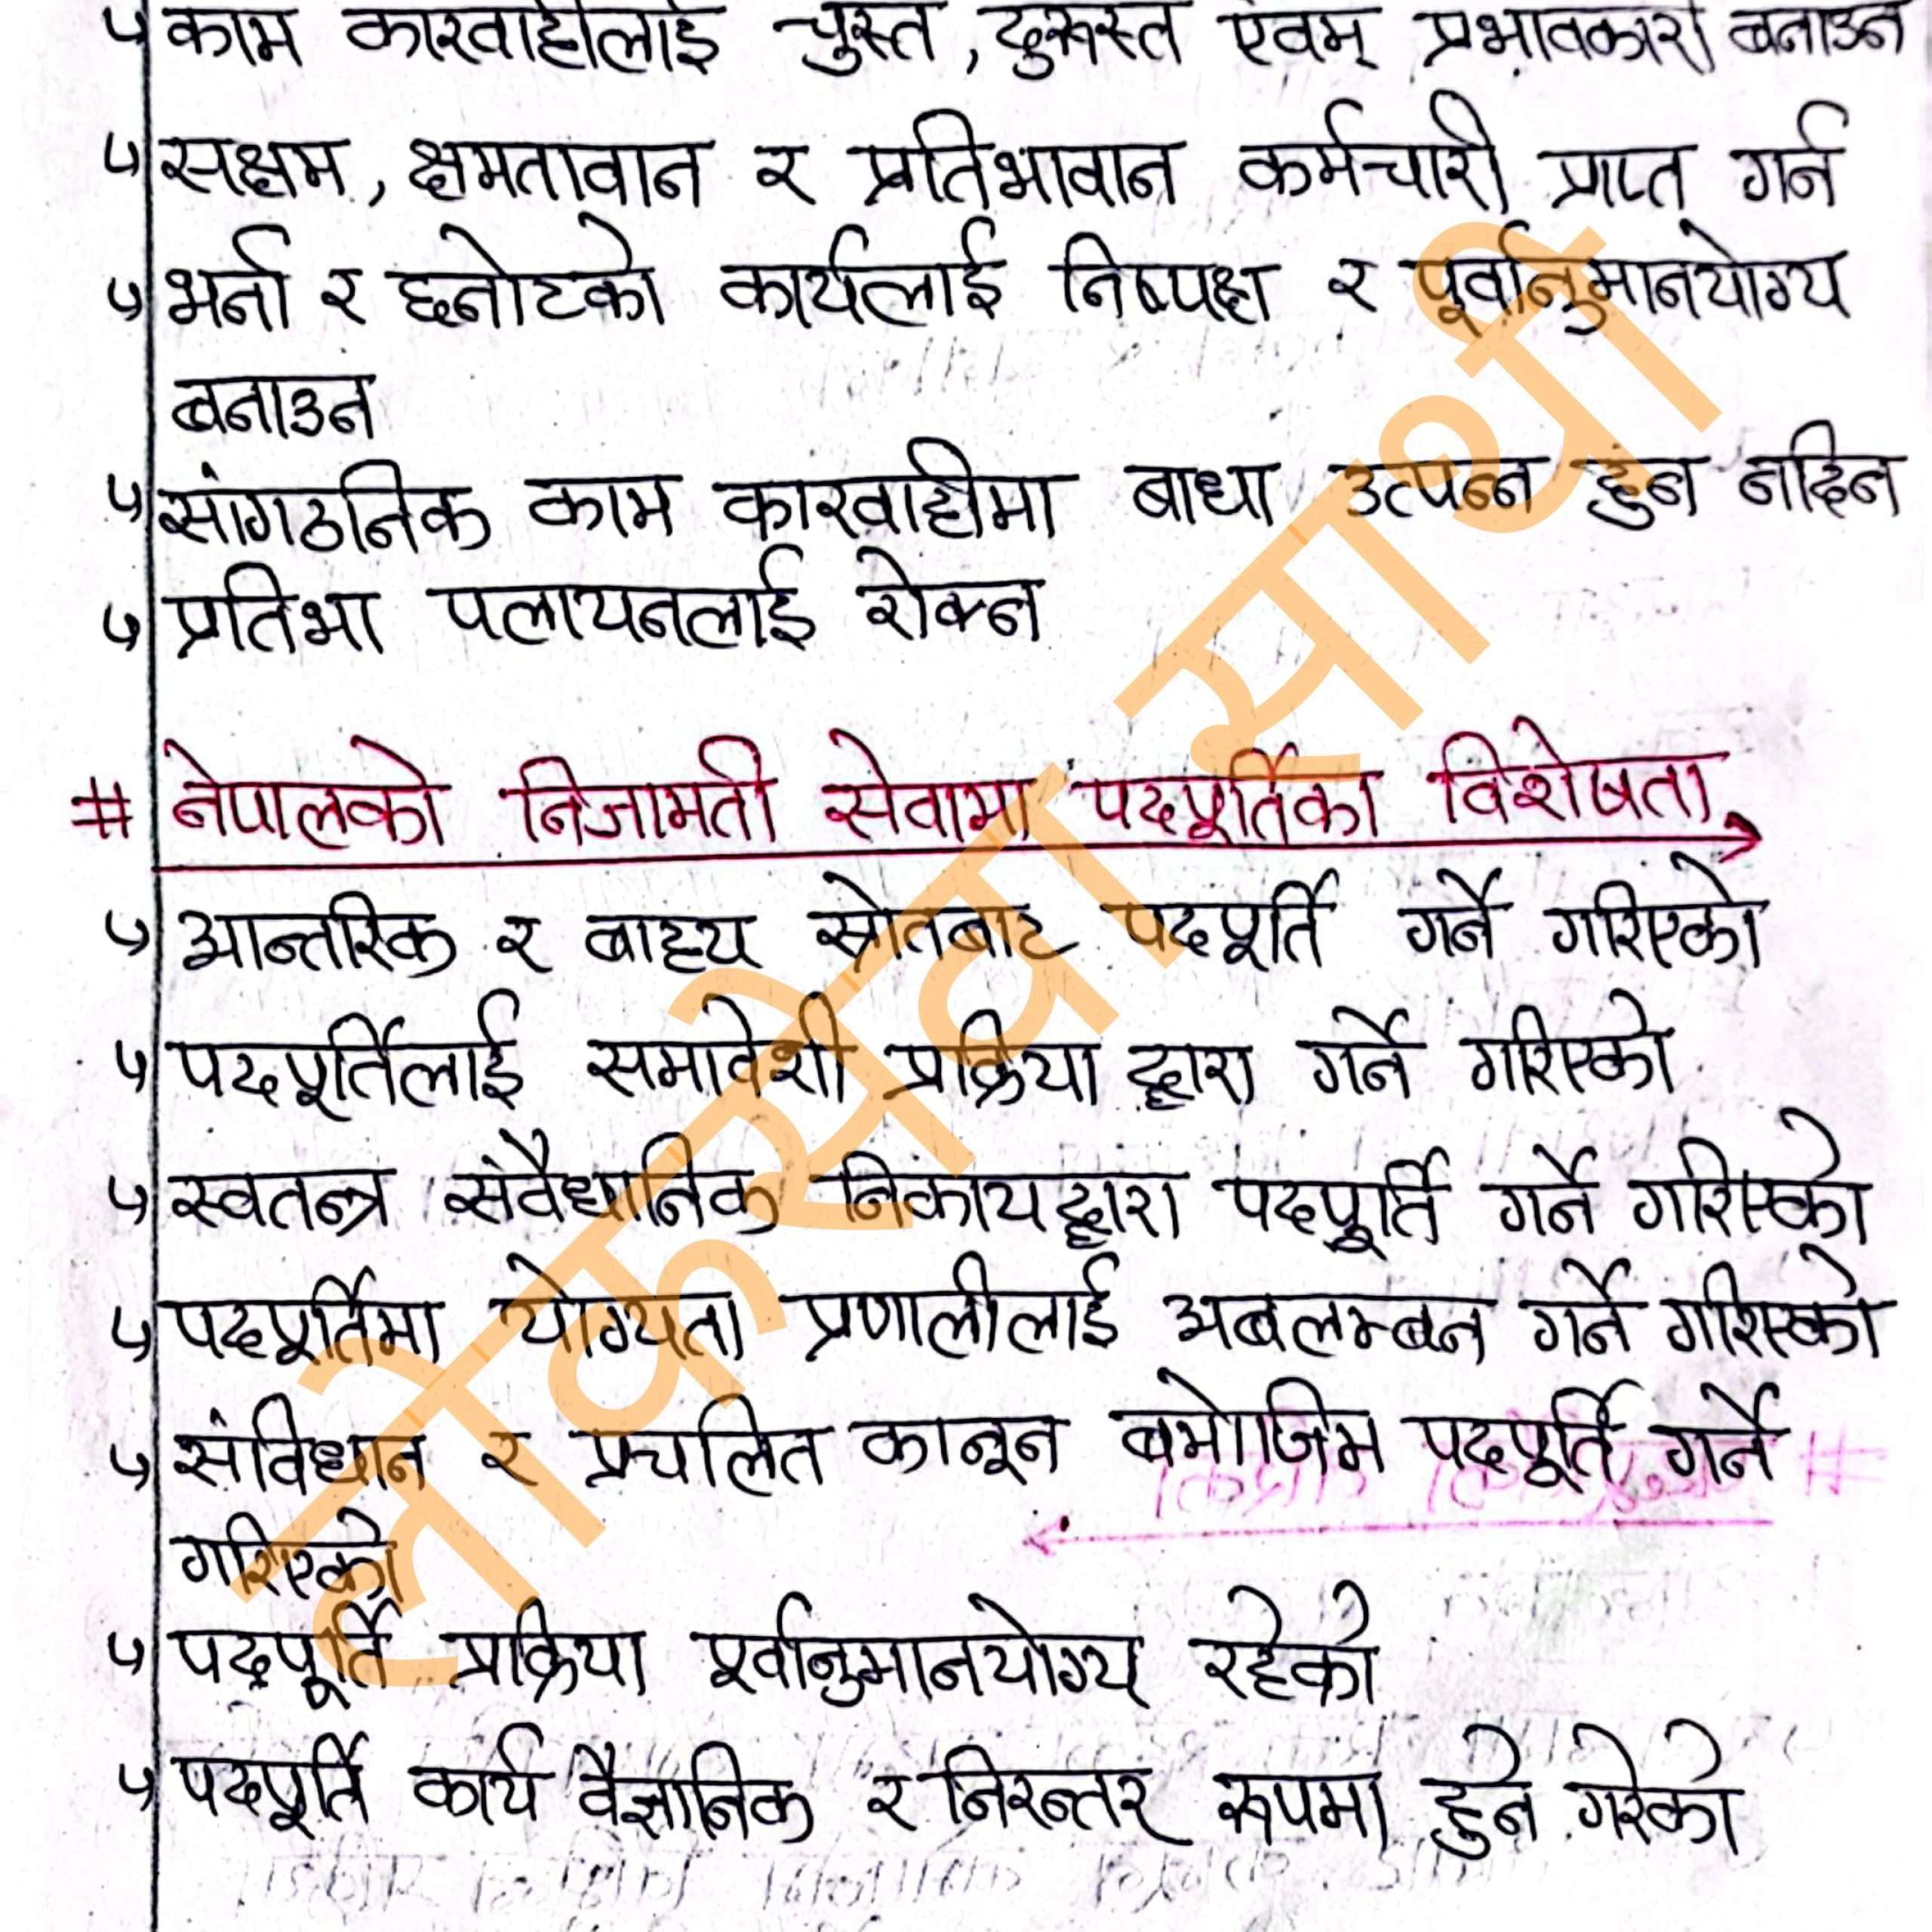 ५ काम कारवाहीलाई चुस्त, दुरूस्त एवम् प्रभावकारी बनाउन
५ सक्षम, क्षमतावान र प्रतिभावान कर्मचारी प्राप्त गर्न
५ भर्ना र छनोटको कार्यलाई निष्पक्ष र पूर्वानुमानयोग्य
बनाउन
५ सांगठनिक काम कारवाहीमा बाधा उत्पन्न हुन नदिन
५ प्रतिभा पलायनलाई रोक्न
# नेपालको निजामती सेवामा पदपूर्तिका विशेषता
५ आन्तरिक र बाह्य स्रोतबाट पदपूर्ति गर्ने गरिएको
५ पदपूर्तिलाई समावेशी प्रक्रिया द्वारा गर्ने गरिएको
५ स्वतन्त्र संवैधानिक निकायद्वारा पदपूर्ति गर्ने गरिएको
५ पदपूर्तिमा योग्यता प्रणालीलाई अबलम्बन गर्ने गरिएको
५ संविधान र प्रचलित कानून बमोजिम पदपूर्ति गर्ने
गरिएको
५ पदपूर्ति प्रक्रिया पूर्वानुमानयोग्य रहेको
५ पदपूर्ति कार्य वैज्ञानिक र निरन्तर रूपमा हुने गरेको
लोकसेवा साथी